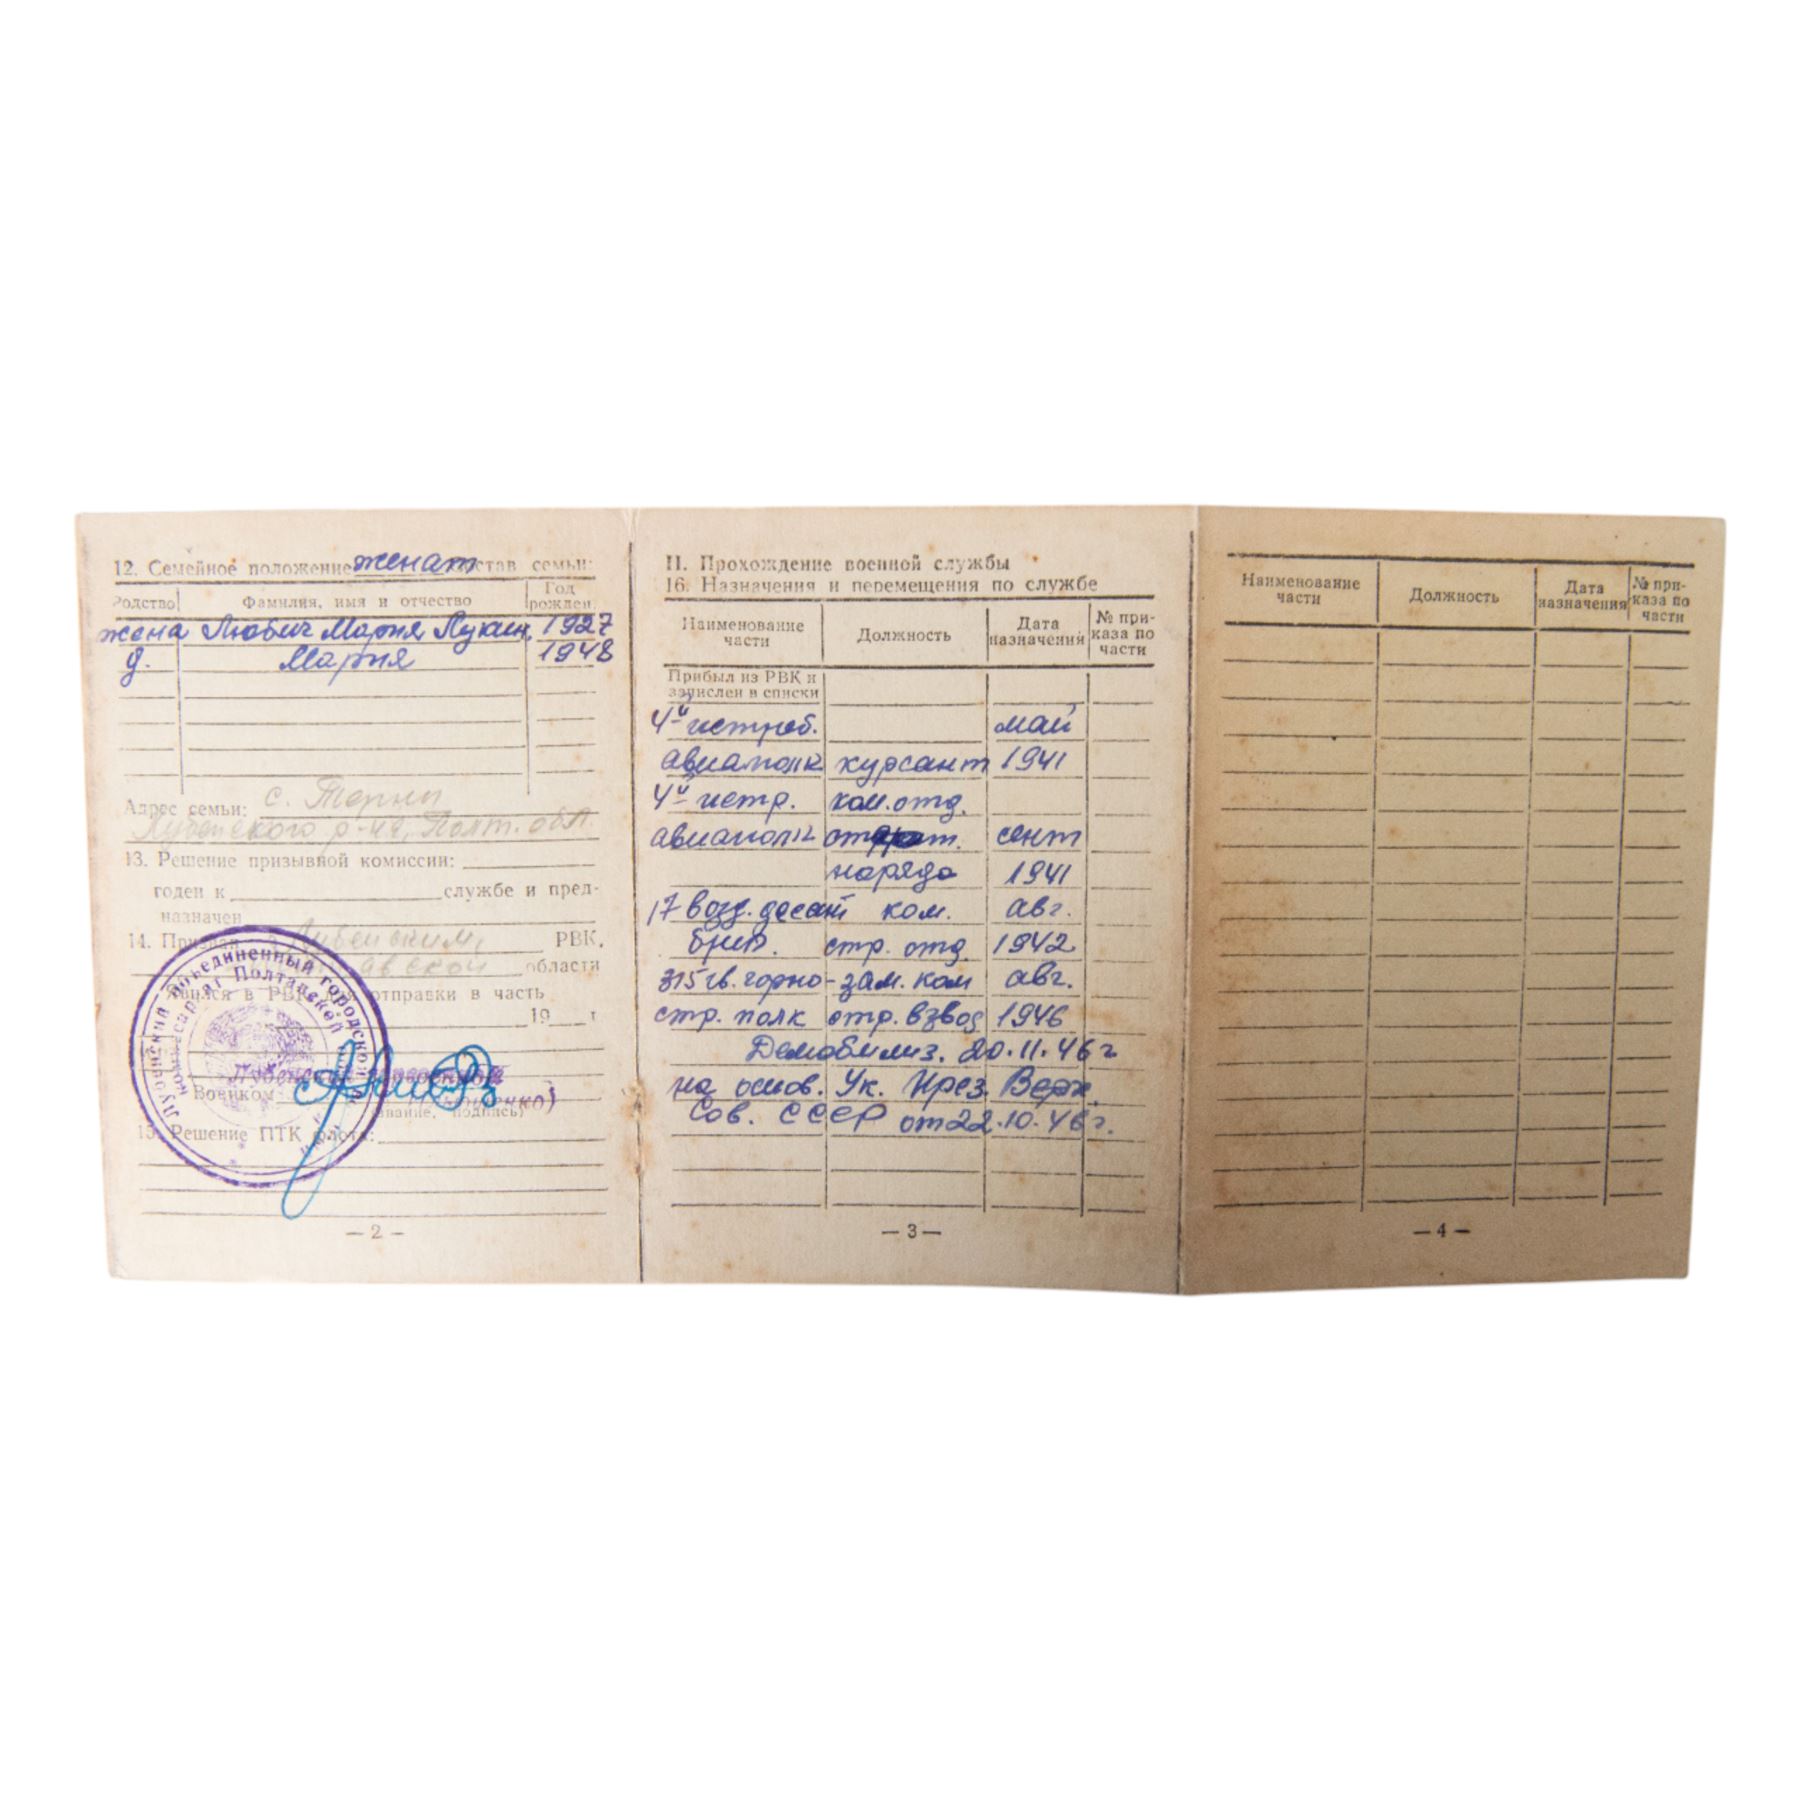 12. Семейное положение женат состав семьи:
Родство Фамилия, имя и отчество Год рожден.
жена Любич Мария Лукин. 1927
д. Мария 1948
Адрес семьи: с. Терны
Лубенского р-на, Полт. обл.
13. Решение призывной комиссии:
годен к службе и пред-
назначен
14. Призван РВК,
области
явился в РВК для отправки в часть
19 г.
Военком
(звание, подпись)
15. Решение ПТК флота:
Лубенский объединенный городской
комиссариат Полтавской
— 2 —
II. Прохождение военной службы
16. Назначения и перемещения по службе
Наименование части Должность Дата назначения № при-каза по части
Прибыл из РВК и
зачислен в списки
4й истреб. май
авиаполк курсант 1941
4й истр. ком. отд.
авиаполк сент
наряда 1941
17 возд. десант ком. авг.
бриг. стр. отд. 1942
315 гв. горно- зам. ком авг.
стр. полк стр. взвод 1946
Демобилиз. 20.11.46 г
на основ. Ук. През. Верх.
Сов. СССР от 22.10.46 г.
— 3 —
Наименование части Должность Дата назначения № при-каза по части
— 4 —